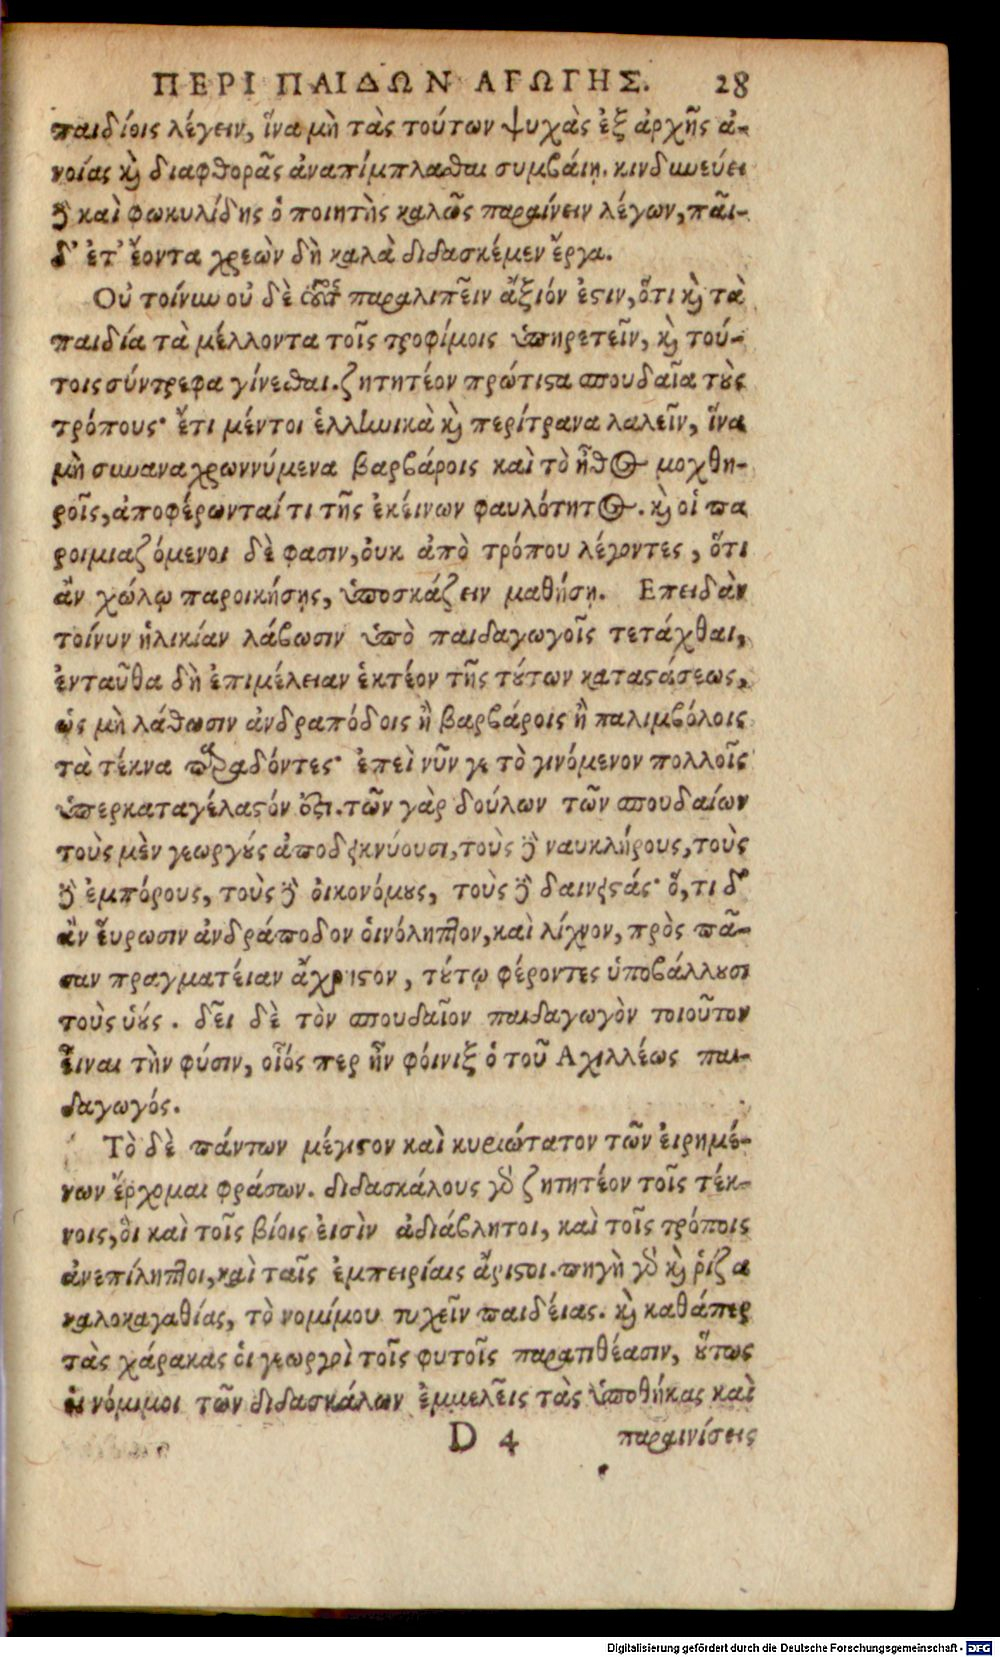 ΠΕΡΙ ΠΑΙΔΩΝ ΑΓΩΓΗΣ. 28
παιδίοις λέγειν, ἵνα μὴ τὰς τούτων ψυχὰς ἐξ ἀρχῆς ἀ-
νοίας κὴ διαφθορᾶς ἀναπίμπλασθαι συμβαίη. κινδυνεύει
δὲ καὶ φωκυλίδης ὁ ποιητὴς καλῶς παραίνειν λέγων, παῖ-
δ' ἔτ' ἔοντα χρεὼν δὴ καλὰ διδασκέμεν ἔργα.
Οὐ τοίνυν οὐ δὲ τοῦτο παραλιπεῖν ἄξιόν ἐστιν, ὅτι κὴ τὰ
παιδία τὰ μέλλοντα τοῖς τροφίμοις ὑπηρετεῖν, κὴ τού-
τοις σύντρεφα γίνεσθαι. ζητητέον πρώτιστα σπουδαῖα τοὺς
τρόπους· ἔτι μέντοι ἑλληνικὰ κὴ περίτρανα λαλεῖν, ἵνα
μὴ συναναχρωννύμενα βαρβάροις καὶ τὸ ἦθος μοχθη-
ροῖς, ἀποφέρωνταί τι τῆς ἐκείνων φαυλότητος. κὴ οἱ πα
ροιμιαζόμενοι δέ φασιν, ὀυκ ἀπὸ τρόπου λέγοντες, ὅτι
ἂν χώλῳ παροικήσῃς, ὑποσκάζειν μαθήσῃ. Επειδὰν
τοίνυν ἡλικίαν λάβωσιν ὑπὸ παιδαγωγοῖς τετάχθαι,
ἐνταῦθα δὴ ἐπιμέλειαν ἑκτέον τῆς τούτων καταστάσεως,
ὡς μὴ λάθωσιν ἀνδραπόδοις ἢ βαρβάροις ἢ παλιμβόλοις
τὰ τέκνα παραδόντες· ἐπεὶ νῦν γε τὸ γινόμενον πολλοῖς
ὑπερκαταγέλαστόν ἐστι. τῶν γὰρ δούλων τῶν σπουδαίων
τοὺς μὲν γεωργοὺς ἀποδεικνύουσι, τοὺς δὲ ναυκλήρους, τοὺς
δὲ ἐμπόρους, τοὺς δὲ ὀικονόμους, τοὺς δὲ δανειστάς· ὅ, τι δ'
ἂν ἕυρωσιν ἀνδράποδον ὀινόληπτον, καὶ λίχνον, πρὸς πᾶ-
σαν πραγματείαν ἄχρηστον, τούτῳ φέροντες ὑποβάλλουσι
τοὺς ὑούς. δεῖ δὲ τὸν σπουδαῖον παιδαγωγὸν τοιοῦτον
εἶναι τὴν φύσιν, οἷός περ ἦν φοίνιξ ὁ τοῦ Αχιλλέως παι-
δαγωγός.
Τὸ δὲ πάντων μέγιστον καὶ κυριώτατον τῶν ἐιρημέ-
νων ἔρχομαι φράσων. διδασκάλους γὰρ ζητητέον τοῖς τέκ-
νοις, ὃι καὶ τοῖς βίοις ἐισὶν ἀδιάβλητοι, καὶ τοῖς τρόποις
ἀνεπίληπτοι, καὶ ταῖς ἐμπειρίαις ἄριστοι. πηγὴ γὰρ κὴ ῥίζα
καλοκαγαθίας, τὸ νομίμου τυχεῖν παιδείας. κὴ καθάπερ
τὰς χάρακας ὁι γεωργοὶ τοῖς φυτοῖς παρατιθέασιν, οὕτως
ὁι νόμιμοι τῶν διδασκάλων ἐμμελεῖς τὰς ὑποθήκας καὶ
D 4 παραινέσεις
Digitalisierung gefördert durch die Deutsche Forschungsgemeinschaft - DFG